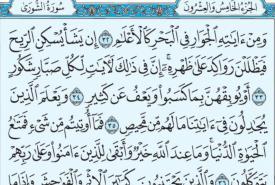 الجزء الخامس والعشرون سورة الشورى
وَمِنْ ءَايَـٰتِهِ ٱلْجَوَارِ فِى ٱلْبَحْرِ كَٱلْأَعْلَـٰمِ ٣٢ إِن يَشَأْ يُسْكِنِ ٱلرِّيحَ
فَيَظْلَلْنَ رَوَاكِدَ عَلَىٰ ظَهْرِهِۦٓ إِنَّ فِى ذَٰلِكَ لَـَٔايَـٰتٍ لِّكُلِّ صَبَّارٍ شَكُورٍ
٣٣ أَوْ يُوبِقْهُنَّ بِمَا كَسَبُوا۟ وَيَعْفُ عَن كَثِيرٍ ٣٤ وَيَعْلَمَ ٱلَّذِينَ
يُجَـٰدِلُونَ فِىٓ ءَايَـٰتِنَا مَا لَهُم مِّن مَّحِيصٍ ٣٥ فَمَآ أُوتِيتُم مِّن شَىْءٍ فَمَتَـٰعُ
ٱلْحَيَوٰةِ ٱلدُّنْيَا وَمَا عِندَ ٱللَّهِ خَيْرٌ وَأَبْقَىٰ لِلَّذِينَ ءَامَنُوا۟ وَعَلَىٰ رَبِّهِمْ